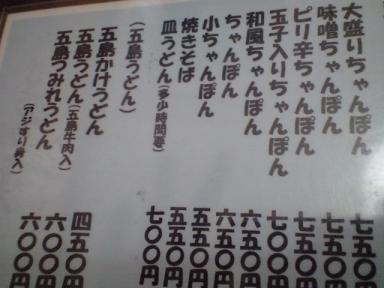 大盛りちゃんぽん 七五〇円
味噌ちゃんぽん 七五〇円
ピリ辛ちゃんぽん 七五〇円
玉子入りちゃんぽん 七〇〇円
和風ちゃんぽん 六五〇円
ちゃんぽん 六五〇円
小ちゃんぽん 五五〇円
焼きそば 五五〇円
皿うどん(多少時間要) 七〇〇円
(五島うどん)
五島かけうどん 四五〇円
五島うどん(五島牛肉入) 六〇〇円
五島つみれうどん 六〇〇円
(アジすり身入)